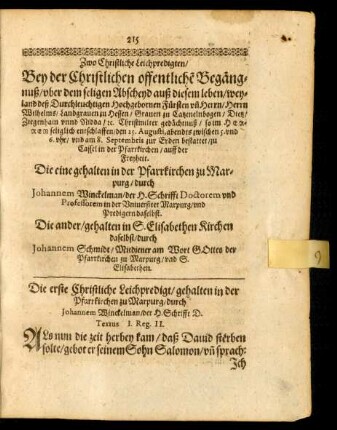 215
Zwo Christliche Leichpredigten/
Bey der Christlichen offentlichē Begäng-
nuß/vber dem seligen Abscheyd auß diesem leben/wey-
land deß Durchleuchtigen Hochgebornen Fürsten vñ Herrn/Herrn
Wilhelms/Landgrauen zu Hessen/Grauen zu Catzenelnbogen/Dietz/
Ziegenhain vnnd Nidda/ꝛc. Christmilter gedächtnuß/so im HER-
REN seliglich entschlaffen/den 25. Augusti, abendes zwischen 5. vnd
6. vhr/vnd am 8. Septembris zur Erden bestattet/zu
Cassel in der Pfarrkirchen/auff der
Freyheit.
Die eine gehalten in der Pfarrkirchen zu Mar-
purg/durch
Johannem Winckelman/der H. Schrifft Doctorem vnd
Professorem in der Vniuersitet Marpurg/vnd
Predigern daselbst.
Die ander/gehalten in S. Elisabethen Kirchen
daselbst/durch
Johannem Schmidt/Mitdiener am Wort GOttes der
Pfarrkirchen zu Marpurg/vnd S.
Elisabethen.
Die erste Christliche Leichpredigt/gehalten in der
Pfarrkirchen zu Marpurg/durch
Johannem Winckelman/der H. Schrifft D.
Textus I. Reg. II.
ALs nun die zeit herbey kam/daß Dauid sterben
solte/gebot er seinem Sohn Salomon/vñ sprach:
Ich